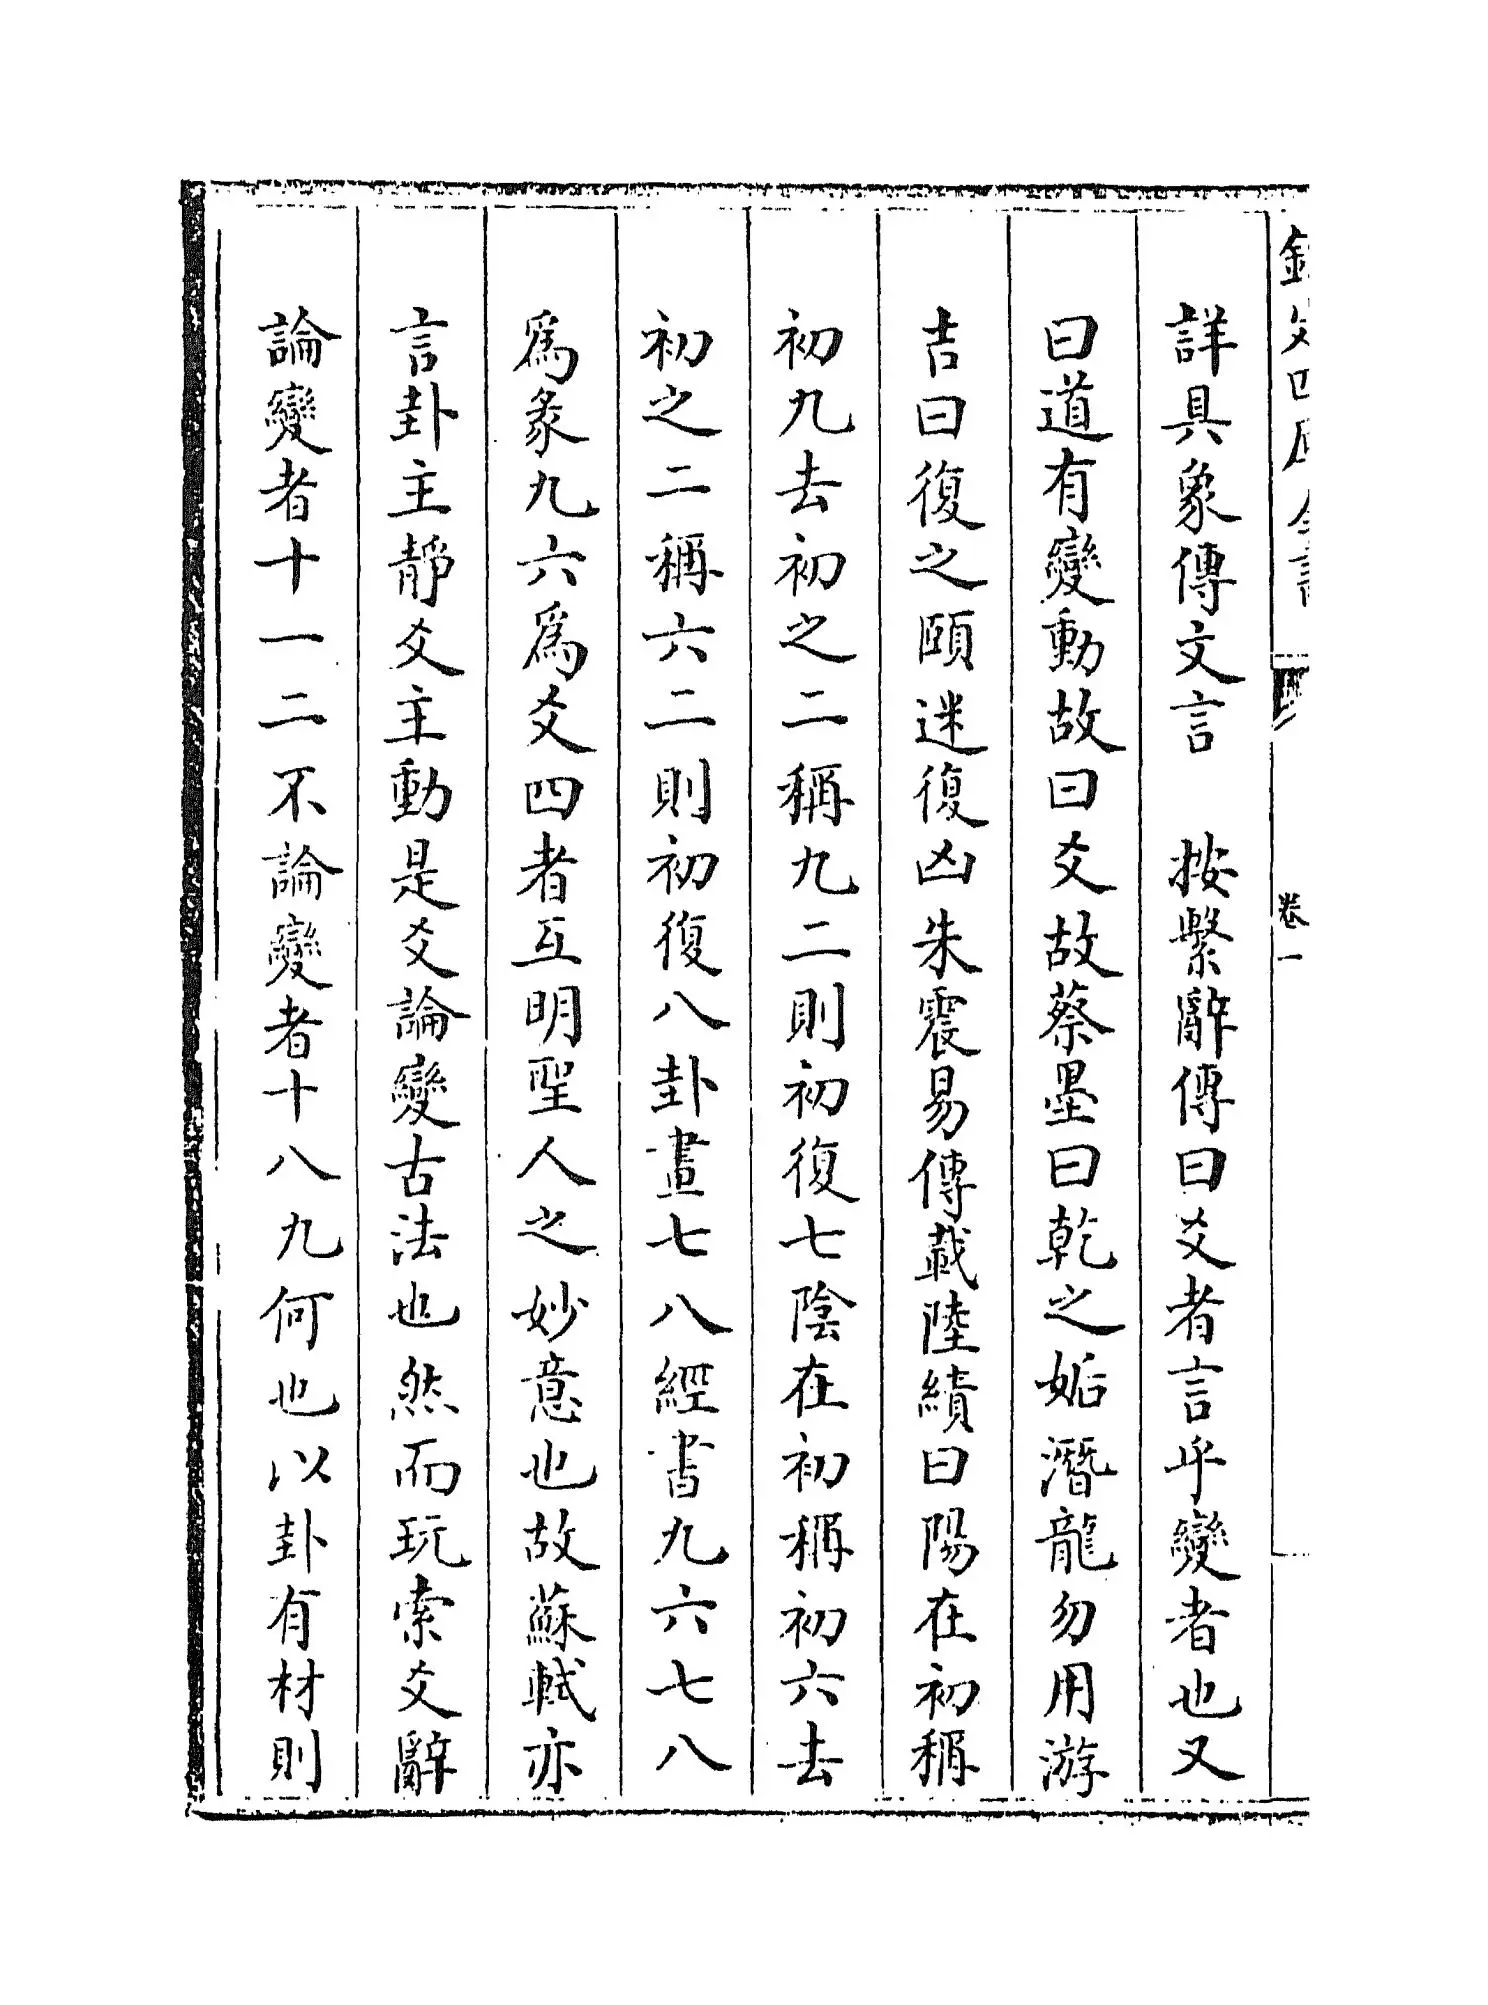 詳具象傳文言　按繫辭傳曰爻者言乎變者也又
曰道有變動故曰爻故蔡墨曰乾之姤潛龍勿用游
吉曰復之頤迷復凶朱震易傳載陸績曰陽在初稱
初九去初之二稱九二則初復七陰在初稱初六去
初之二稱六二則初復八卦畫七八經書九六七八
為彖九六為爻四者互明聖人之妙意也故蘇軾亦
言卦主靜爻主動是爻論變古法也然而玩索爻辭
論變者十一二不論變者十八九何也以卦有材則
卷一